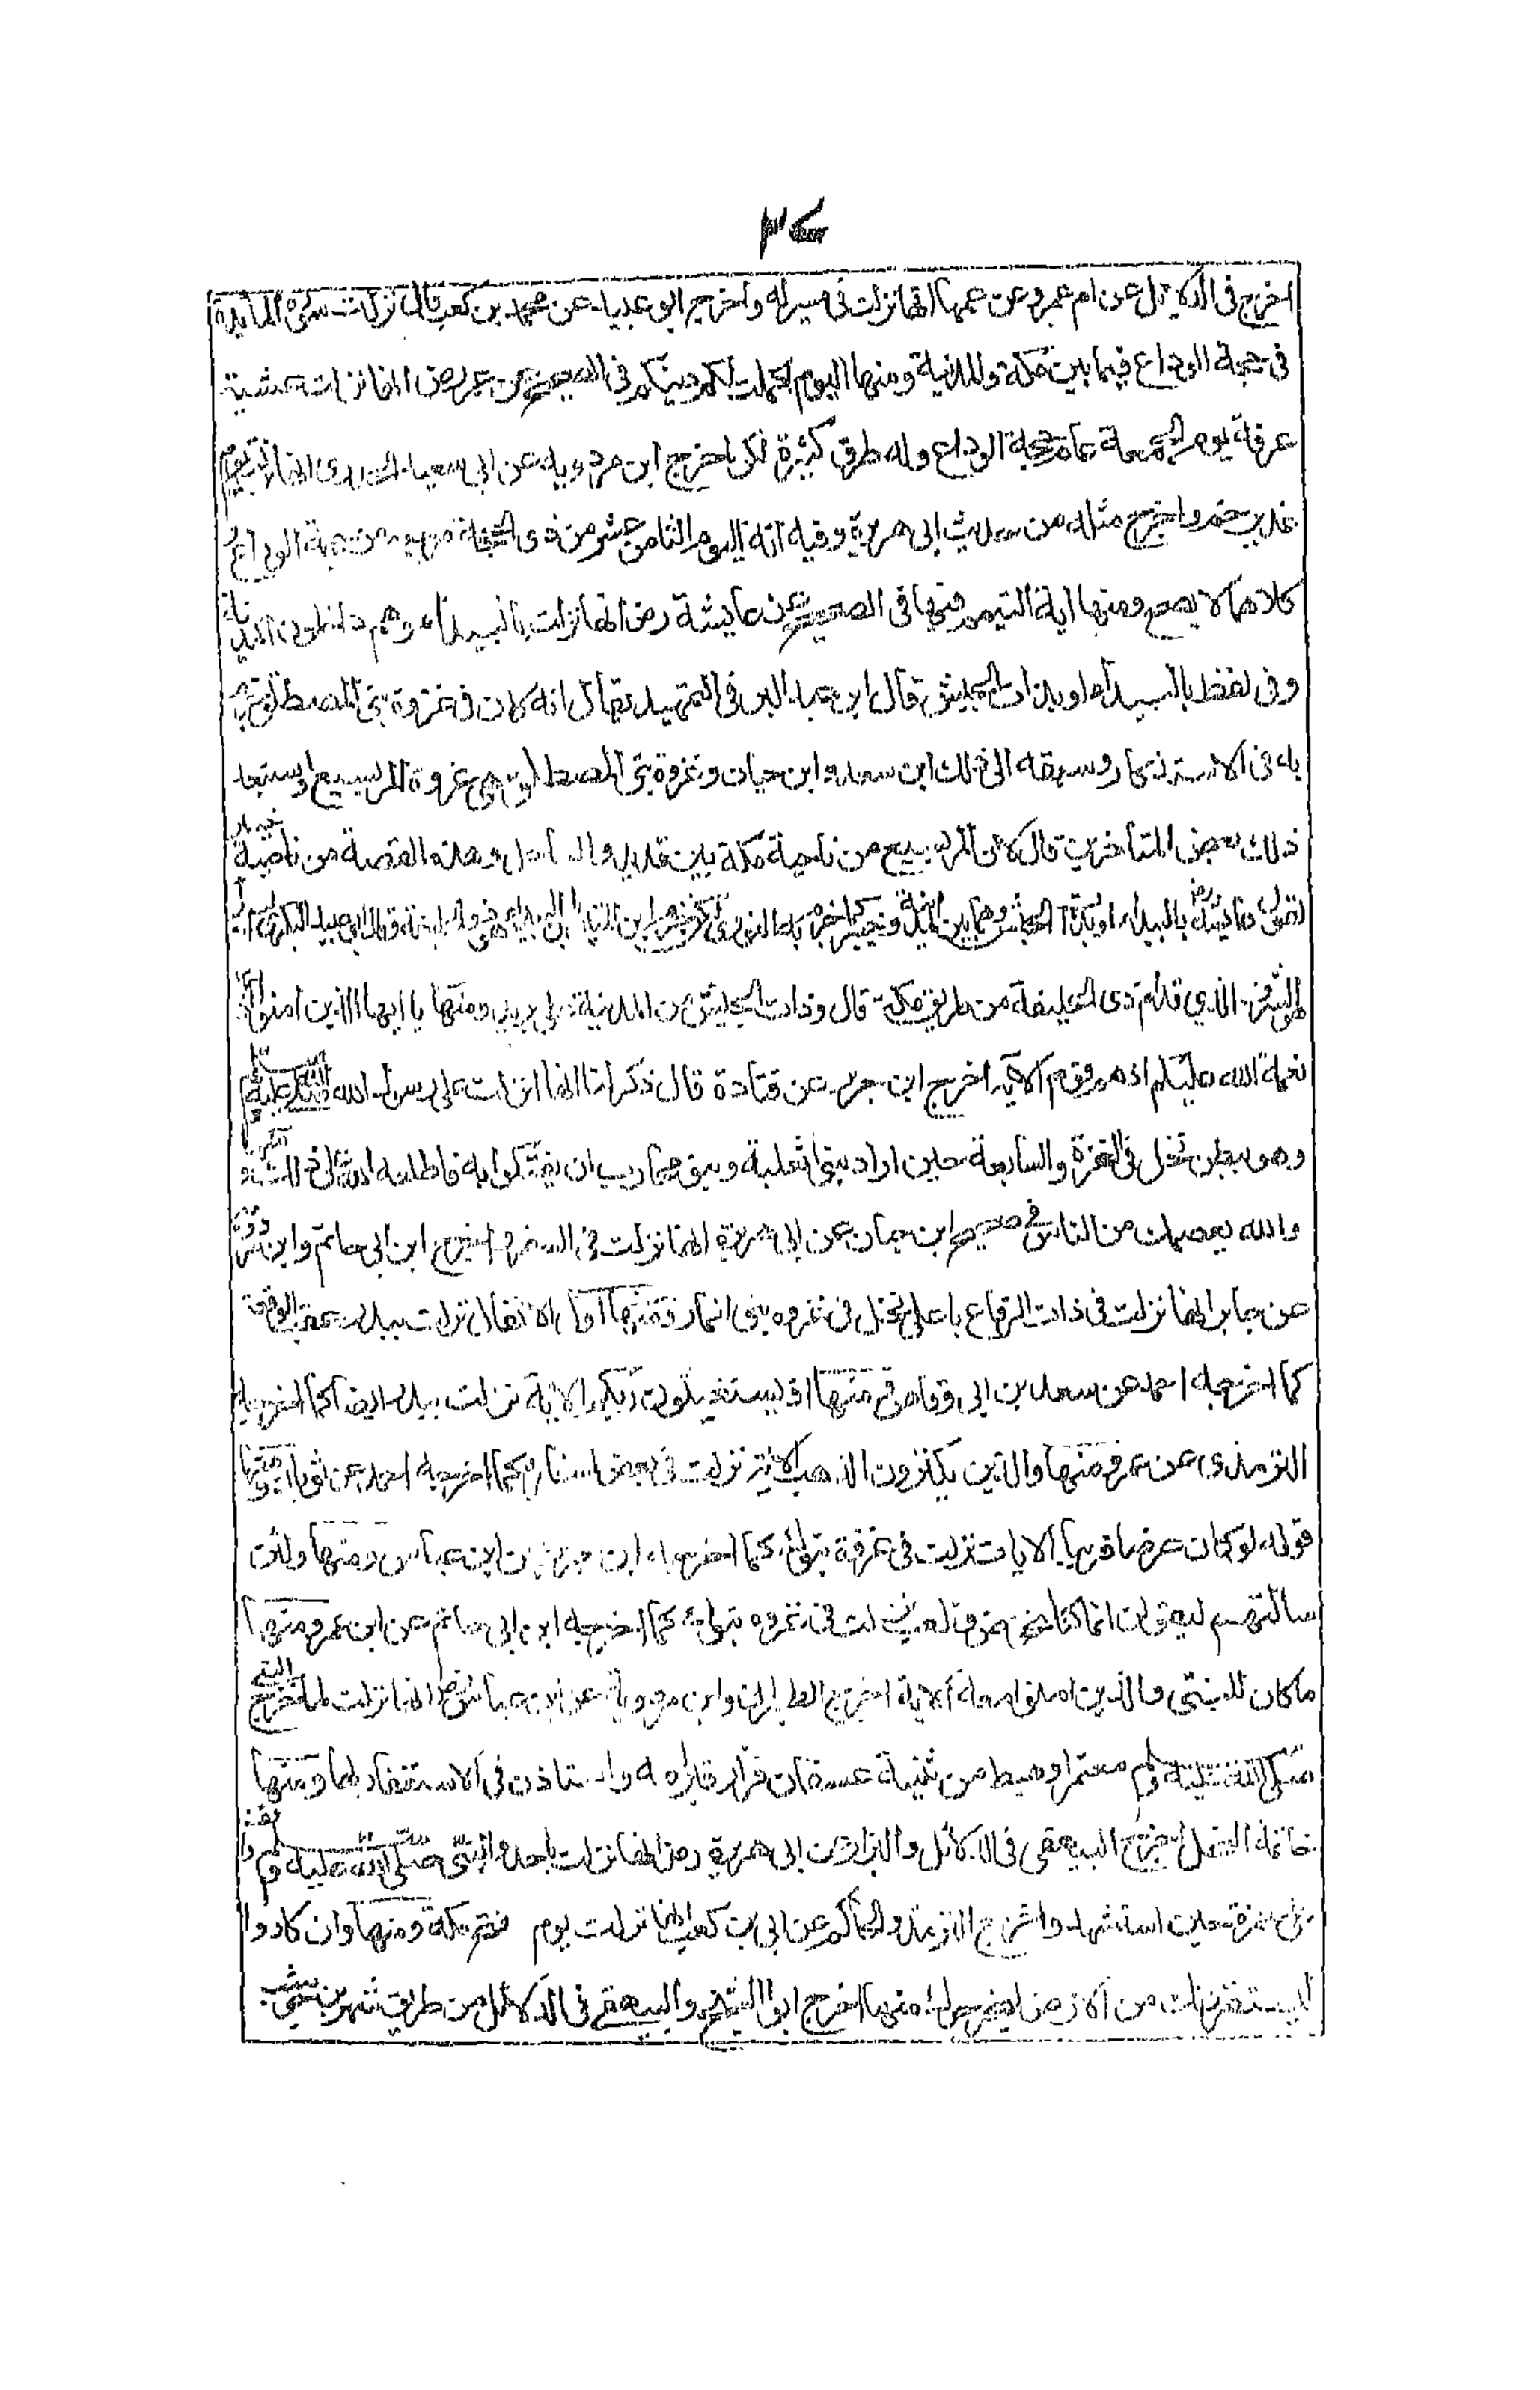 ٣٤
اخرج فى الدلايل عن ام عمرو عن عمها انها نزلت فى مسير له واخرج ابو عبيد عن محمد بن كعب قال نزلت سورة المايدة
فى حجة الوداع فيما بين مكة والمدينة ومنها اليوم اكملت لكم دينكم فى الصحيح عن عمر رض انها نزلت عشية
عرفة يوم الجمعة عام حجة الوداع وله طرق كثيرة لكن اخرج ابن مردويه عن ابى سعيد الخدرى انها نزلت يوم
غدير خم واخرج مثله من حديث ابى هريرة وفيه انه اليوم الثامن عشر من ذى الحجة مرجعه من حجة الوداع و
كلاهما لا يصح ومنها اية التيمم فيها فى الصحيح عن عايشة رض انها نزلت بالبيداء وهم داخلون المدينة
وفى لفظ بالبيداء او بذات الجيش قال ابن عبد البر فى التمهيد يقال انه كان فى غزوة بنى المصطلق وجزم
به فى الاستذكار وسبقه الى ذلك ابن سعد و ابن حبان وغزوة بنى المصطلق هى غزوة المريسيع واستبعد
ذلك بعض المتأخرين قال لان المريسيع من ناحية مكة بين قديد والساحل وهذه القصة من ناحية خيبر
لقول عايشة رض بالبيداء او بذات الجيش وهما بين المدينة وخيبر كما جزم به النووى لكن جزم ابن التين بان البيداء هى ذو الحليفة وقال ابو عبيد البكرى
الشرف الذي قدام ذى الحليفة من طريق مكة قال وذات الجيش من المدينة على بريد ومنها يا ايها الذين امنوا اذكروا
نعمة الله عليكم اذ هم قوم الآية اخرج ابن جرير عن قتادة قال ذكر لنا انها انزلت على رسول الله صلى الله عليه وسلم
وهو ببطن نخل فى الغزوة السابعة حين اراد بنو ثعلبة وبنو محارب ان يفتكوا به فاطلعه الله على ذلك ومنها
والله يعصمك من الناس فى صحيح ابن حبان عن ابى هريرة انها نزلت فى السفر واخرج ابن ابى حاتم وابن مردويه
عن جابر انها نزلت فى ذات الرقاع باعلى نخل فى غزوه بنى انمار ومنها اول الانفال نزلت ببدر عقب الوقعة
كما اخرجه احمد عن سعد بن ابى وقاص ومنها اذ تستغيثون ربكم الاية نزلت ببدر ايضا كما اخرجه
الترمذى عن عمر ومنها والذين يكنزون الذهب الآية نزلت فى بعض اسفاره كما اخرجه احمد عن ثوبان ومنها
قوله لو كان عرضا قريبا الايات نزلت فى غزوة تبوك كما اخرجه ابن جرير عن ابن عباس ومنها ولئن
سالتهم ليقولن انما كنا نخوض ونلعب نزلت فى غزوه تبوك كما اخرجه ابن ابى حاتم عن ابن عمر ومنها
ما كان للنبى والذين امنوا معه الاية اخرج الطبرانى وابن مردوية عن ابن عباس رض انها نزلت لما خرج النبى
صلى الله عليه وسلم معتمرا وهبط من ثنية عسفان فزار قبر امه واستاذن فى الاستغفار لها ومنها
خاتمة النحل اخرج البيهقى فى الدلائل والبزار عن ابى هريرة رض انها نزلت باحد والنبى صلى الله عليه وسلم واقف
على حمزة حين استشهد واخرج الترمذى والحاكم عن ابى بن كعب انها نزلت يوم فتح مكة ومنها وان كادوا
ليستفزونك من الارض ليخرجوك منها اخرج ابو الشيخ والبيهقى فى الدلائل من طريق شهر بن حوشب